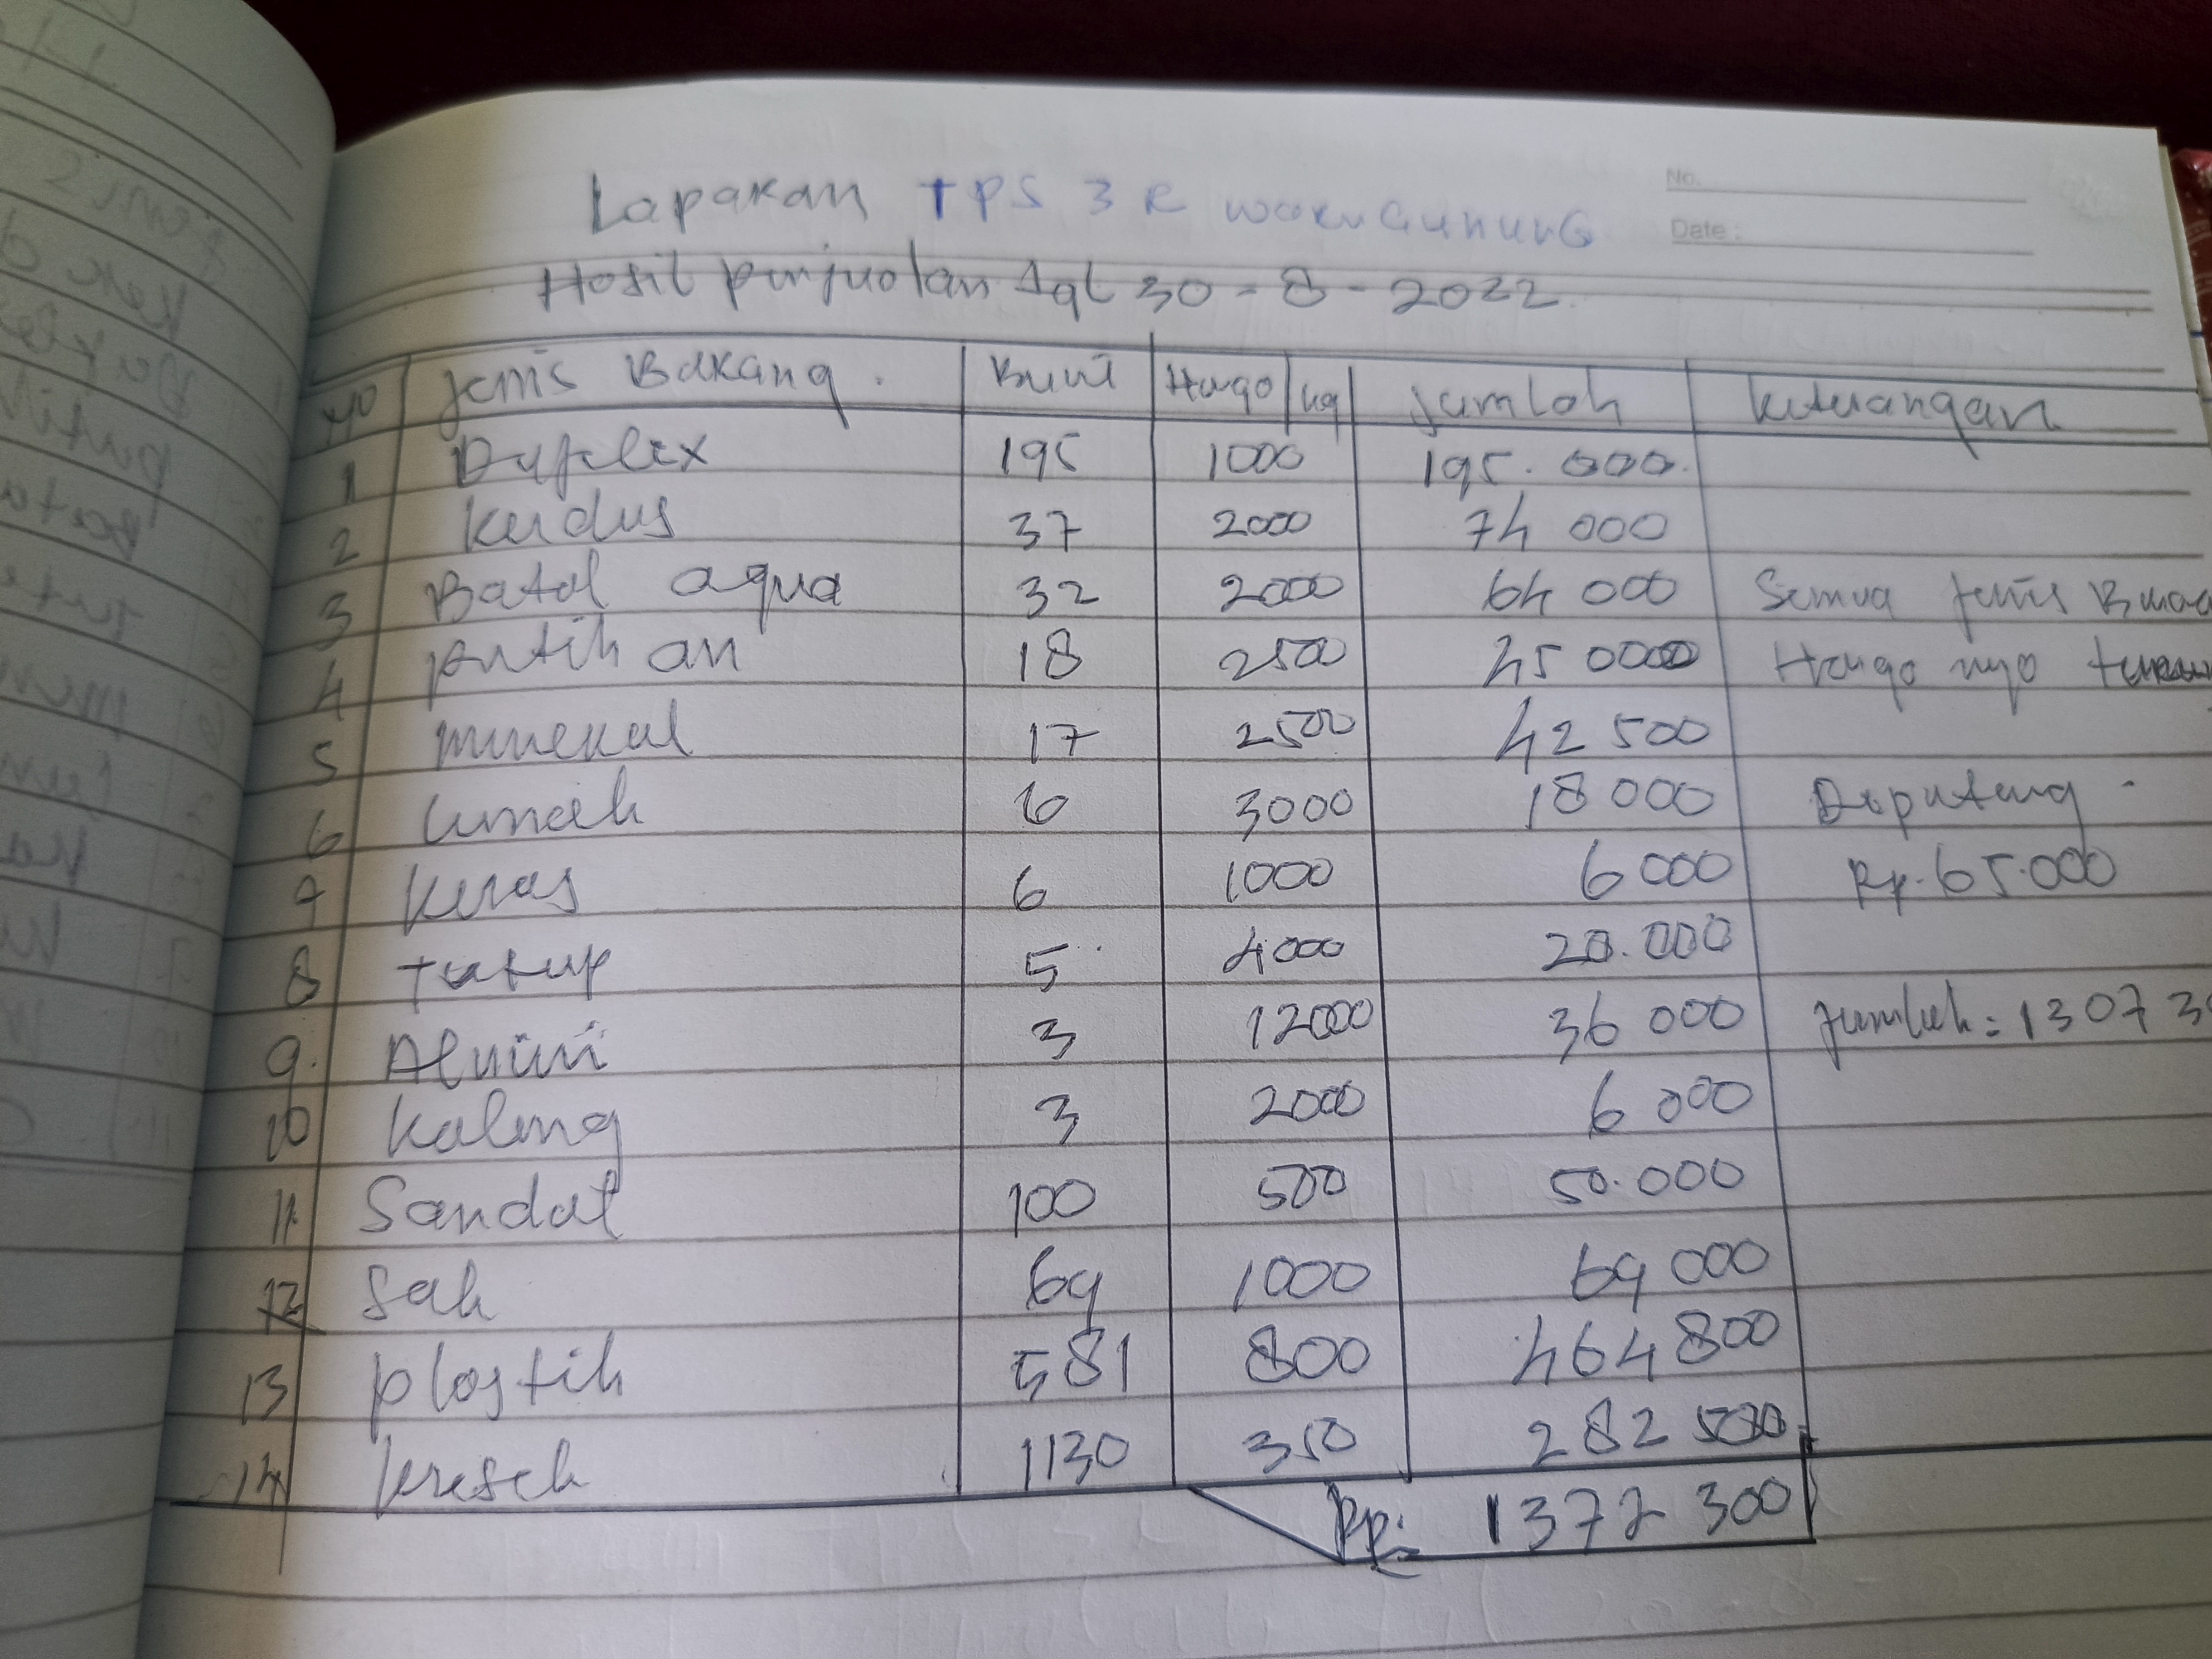 Laporan TPS 3 R WARUGUNUNG
No.
Date :
Hasil penjualan tgl 30 - 8 - 2022.
NO Jenis Barang. Berat Harga/kg jumlah keterangan
1 Duplex 195 1000 195.000.
2 Kerdus 37 2000 74 000
3 Batol aqua 32 2000 64 000 Semua jenis
4 putih an 18 2500 45 0000 Harga nya
5 mineral 17 2500 42 500
6 6 3000 18 000 Dipotong
7 Keras 6 1000 6 000 Rp. 65.000
8 tutup 5 4000 20.000
9. Alumini 3 12000 36 000 jumlah = 1307 3
10 Kaleng 3 2000 6 000
11 Sandal 100 500 50.000
12 Sak 69 1000 69 000
13 plastik 581 800 464 800
14 kresek 1130 350 282 500
Rp: 1372 300